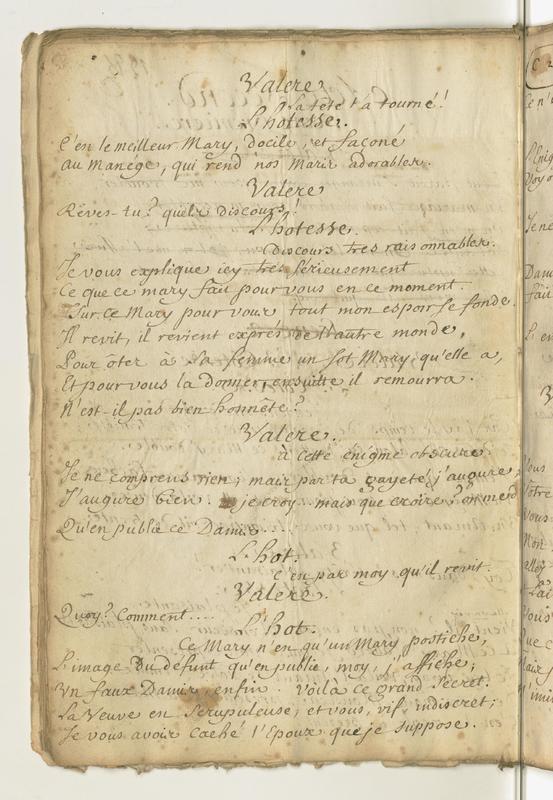 Valere.
la tête t'a tourné!
L'hotesse.
C'en le meilleur Mary, docile, et façoné
au Manége, qui rend nos Maris adorables.
Valere
Rêves-tu? quels Discours!
L'hotesse.
Discours tres raisonnables.
Je vous explique icy tres sérieusement
Ce que ce mary fait pour vous en ce moment.
Sur ce Mary pour vous tout mon espoir se fonde.
Il revit, il revient exprés de l'autre monde,
Pour ôter à sa femme un sot Mary qu'elle a,
Et pour vous la donner, ensuitte il remourra.
N'est-il pas bien honnête?
Valere.
à cette énigme obscure
Je ne comprens rien; mais par ta gayeté j'augure,
J'augure bien.. je croy.. mais que croire?
Qu'en publie ce Damis....
L'hot.
C'en par moy qu'il revit.
Valere.
Quoy? Comment....
L'hot.
Ce Mary n'en qu'un Mary postiche,
L'image du défunt qu'en publie, moy, j'affiche;
Un faux Damis, enfin. Voila ce grand secret.
La Veuve en scrupuleuse, et vous, vif, indiscret;
Je vous avois caché l'Epoux que je suppose.